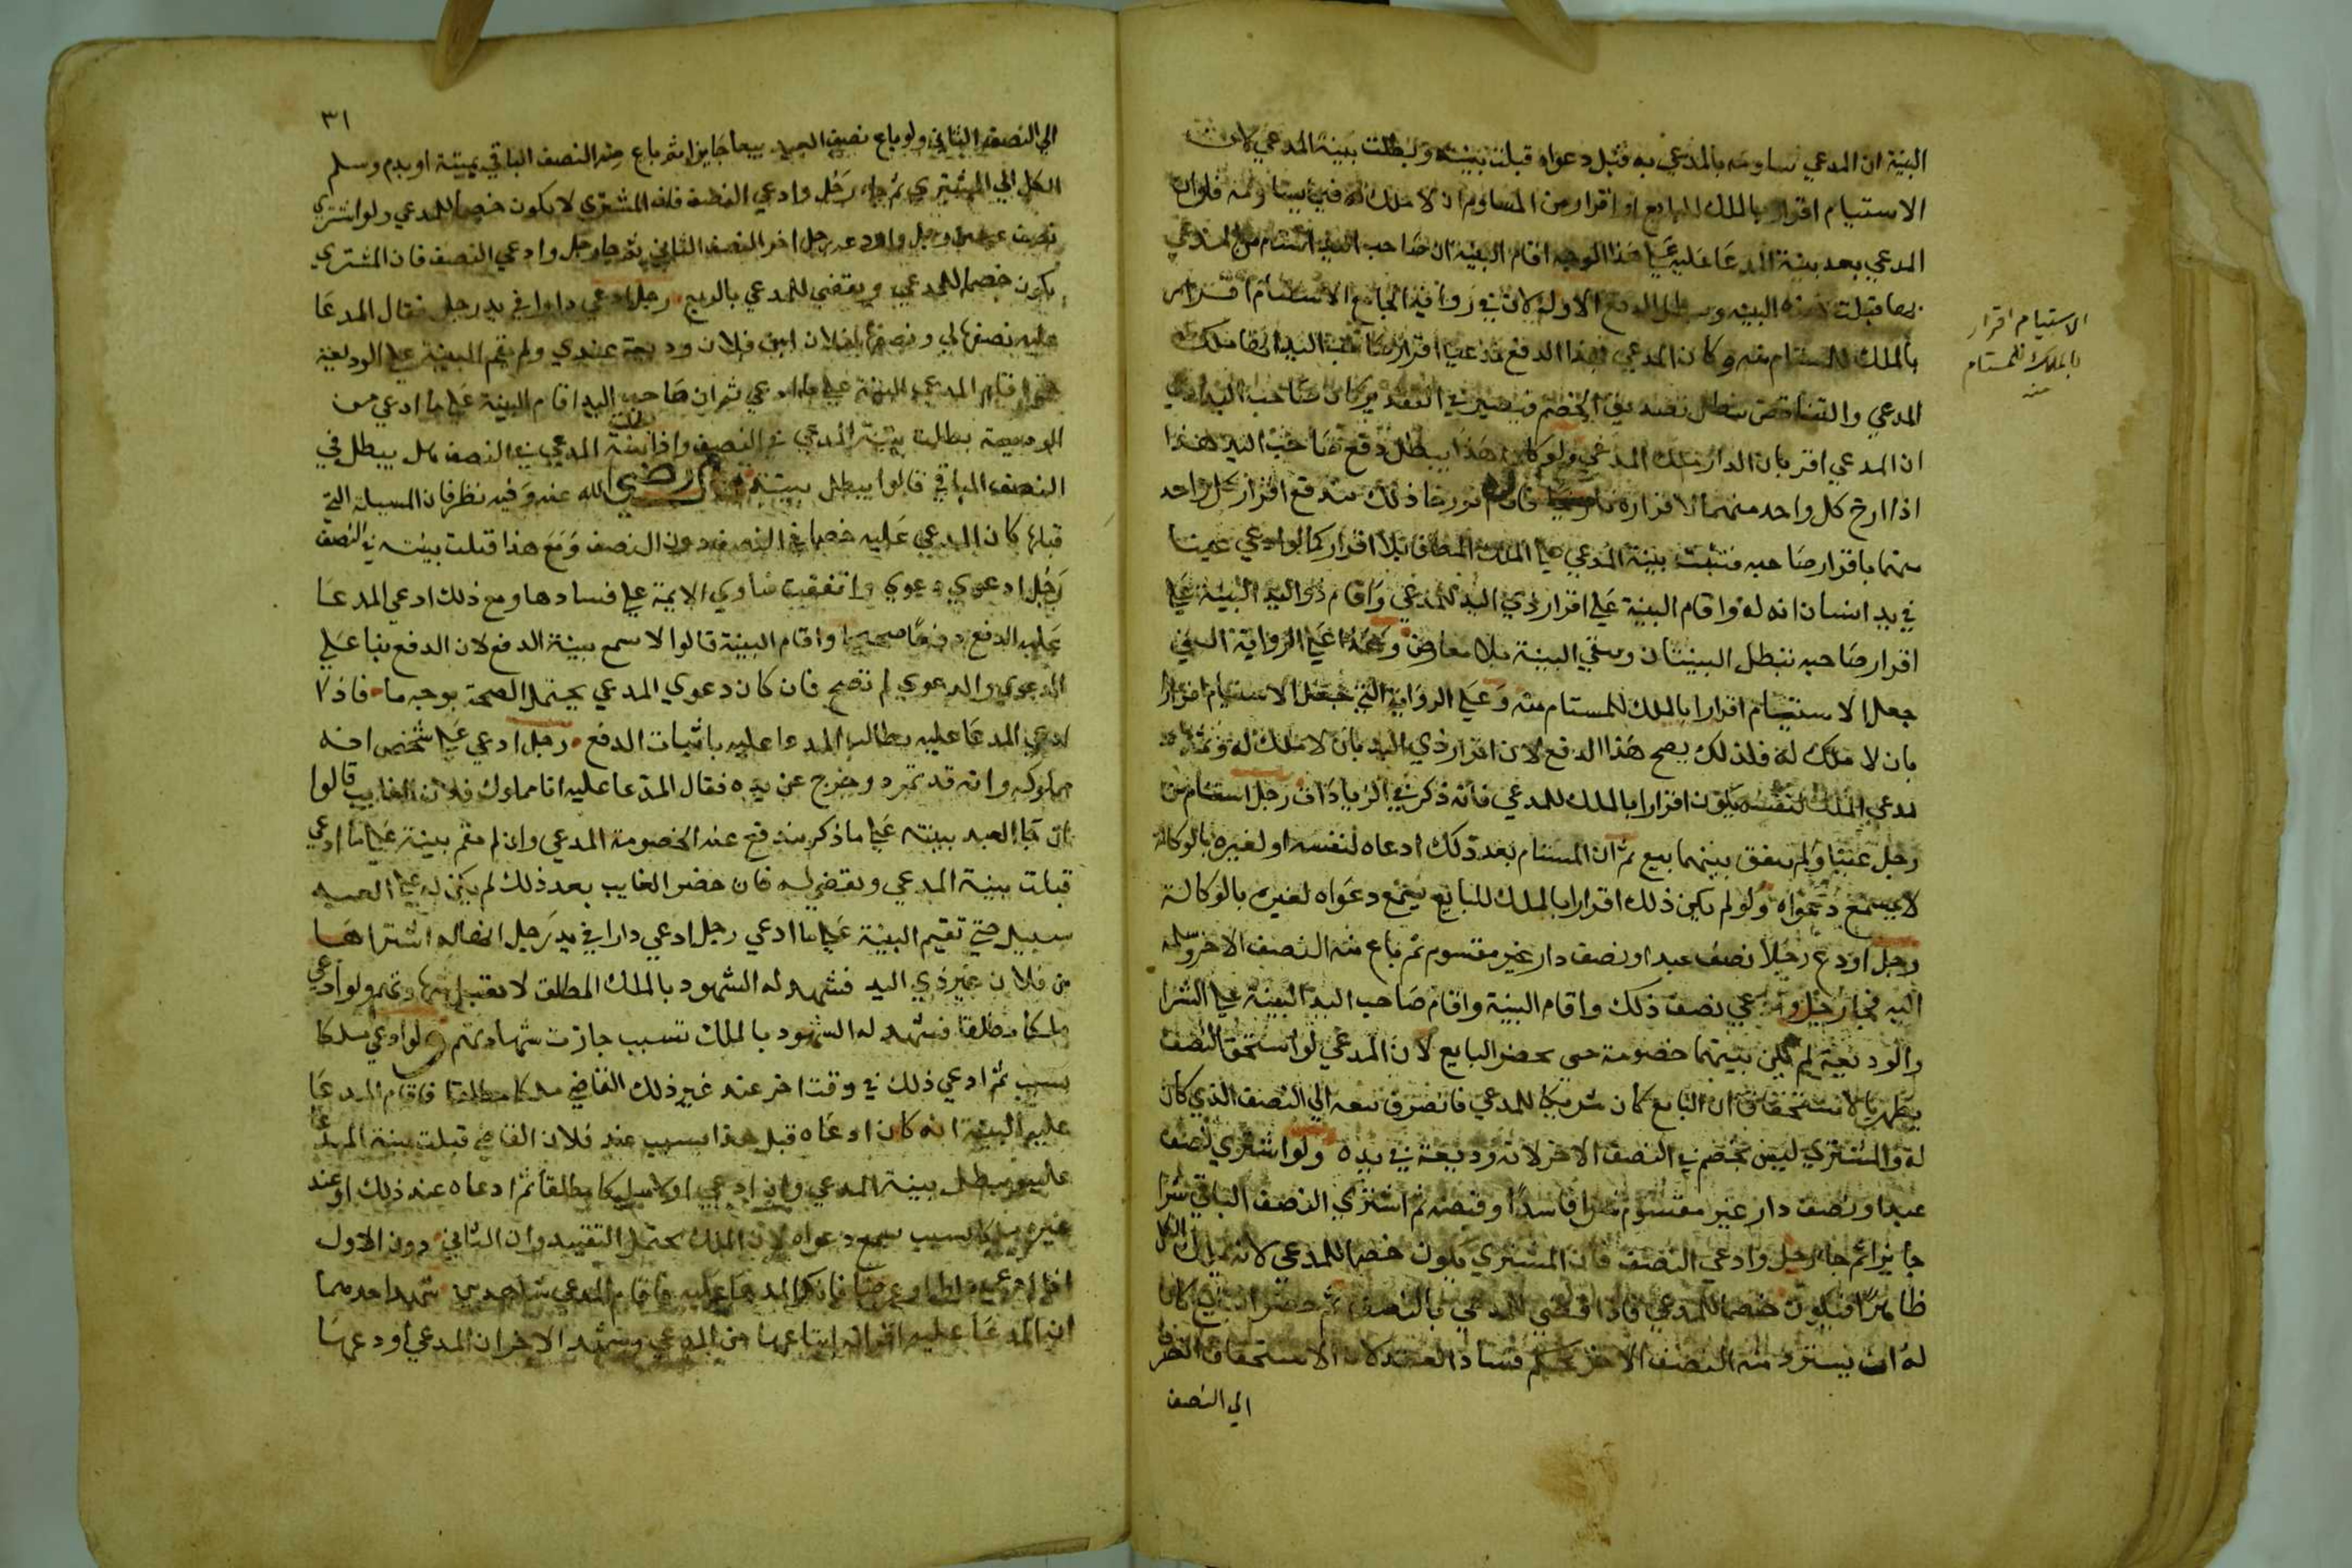 البينة ان المدعي ساومه بالمدعي به قبل دعواه قبلت بينته وبطلت بينة المدعي لان
الاستيام اقرار بالملك للبايع او اقرار من المساوم ان لا ملك له فيما يساومه فلو ان
المدعي بعد بينة المدعا عليه علي هذا الوجه اقام البينة ان صاحب اليد استام من المدعي
قبلت هذه البينه ويبطل الدفع الاول لان في رواية الجامع الاستيام اقرار
بالملك للمستام منه وكان المدعي بهذا الدفع مدعيا اقرار صاحب اليد انها ملك
المدعي والتناقض يبطل بتصديق الخصم فيصير في التقدير كان صاحب اليد ادعي
ان المدعي اقر بان الدار ملك المدعي ولو كان هذا يبطل دفع صاحب اليد هذا
اذا ارخ كل واحد منهما لاقراره تاريخا فان لم يورخا ذلك يندفع اقرار كل واحد
منهما باقرار صاحبه فتثبت بينة المدعي علي الملك المطلق بلا اقرار كما لو ادعي عينا
في يد انسان انه له واقام البينة علي اقرار ذي اليد للمدعي واقام ذو اليد البينة علي
اقرار صاحبه تبطل البينتان وبقي البينة بلا معارض وهذا علي الرواية التي
جعل الاستيام اقرارا بالملك للمستام منه وعلي الرواية التي جعل الاستيام اقرارا
بان لا ملك له فلذلك يصح هذا الدفع لان اقرار ذي اليد بان لا ملك له وثمة
مدعي الملك لنفسه يكون اقرارا بالملك للمدعي فانه ذكر في الزيادات رجل استام من
رجل عينا ولم يتفق بينهما بيع ثم ان المستام بعد ذلك ادعاه لنفسه او لغيره بالوكالة
لا يسمع دعواه ولو لم يكن ذلك اقرارا بالملك للبايع يسمع دعواه لغيره بالوكالة
رجل اودع رجلا نصف عبد او نصف دار غير مقسوم ثم باع منه النصف الاخر وسلمه
اليه فجا رجل وادعي نصف ذلك واقام البينة واقام صاحب اليد البينة علي الشرا
والوديعة لم يكن بينهما خصومة حتى يحضر البايع لان المدعي لو استحق النصف
يظهر بالاستحقاق ان البايع كان شريكا للمدعي فانصرف بيعه الي النصف الذي كان
له والمشتري ليس بخصم في النصف الاخر لانه وديعة في يده ولو اشتري نصف
عبد او نصف دار غير مقسوم شرا فاسدا وقبضه ثم اشتري النصف الباقي شرا
جايزا ثم جا رجل وادعي النصف فان المشتري يكون خصما للمدعي لانه يملك الكل
ظاهرا فيكون خصما للمدعي فاذا قضي للمدعي بالنصف ثم حضر البايع كان
له ان يسترد منه النصف الاخر بحكم فساد العقد لان الاستحقاق انصرف
الي النصف
الاستيام اقرار
بالملك للمستام
منه
٣١
الي النصف الثاني ولو باع نصف العبد بيعا جايزا ثم باع منه النصف الباقي بميتة او بدم وسلم
الكل الي المشتري ثم جا رجل وادعي النصف فان المشتري لا يكون خصما للمدعي ولو اشتري
نصف عبد من رجل واودعه رجل اخر النصف الثاني ثم جا رجل وادعي النصف فان المشتري
يكون خصما للمدعي ويقضي للمدعي بالربع رجل ادعي دارا في يد رجل فقال المدعا
عليه نصفها لي ونصفها لفلان ابن فلان وديعة عندي ولم يقم البينة علي الوديعة
حتى اقام المدعي البينة علي ما ادعي ثم ان صاحب اليد اقام البينة علي ما ادعي من
الوديعة بطلت بينة المدعي في النصف واذا بطلت بينة المدعي في النصف هل يبطل في
النصف الباقي قالوا يبطل بينته رضي الله عنه وفيه نظر فان المسيلة التي
قبلها كان المدعي عليه خصما في النصف دون النصف ومع هذا قبلت بينته في النصف
رجل ادعي دعوي واتفقت فتاوي الايمة علي فسادها ومع ذلك ادعي المدعا
عليه الدفع دفعا صحيحا واقام البينة قالوا لا يسمع بينة الدفع لان الدفع بنا علي
الدعوي والدعوي لم تصح فان كان دعوي المدعي يحتمل الصحة بوجه ما فاذا
ادعي المدعا عليه يطالب المدعا عليه باثبات الدفع رجل ادعي علي شخص انه
مملوكه وانه قد تمرد وخرج عن يده فقال المدعا عليه انا مملوك فلان الغايب قالوا
ان جا العبد ببينة علي ما ذكر يندفع عنه الخصومة المدعي وان لم يقم بينة علي ما ادعي
قبلت بينة المدعي ويقضي له فان حضر الغايب بعد ذلك لم يكن له علي العبد
سبيل حتي تقيم البينة علي ما ادعي رجل ادعي دارا في يد رجل انها له اشتراها
من فلان غير ذي اليد فشهد له الشهود بالملك المطلق لا تقبل شهادتهم ولو ادعي
ملكا مطلقا فشهد له الشهود بالملك بسبب جازت شهادتهم ولو ادعي ملكا
بسبب ثم ادعي ذلك في وقت اخر عند غير ذلك القاضي ملكا مطلقا فاقام المدعا
عليه البينة انه كان ادعاه قبل هذا بسبب عند فلان القاضي قبلت بينة المدعا
عليه ويبطل بينة المدعي وان ادعي اولا ملكا مطلقا ثم ادعاه عند ذلك او عند
غيره ملكا بسبب يسمع دعواه لان الملك يحتمل التقييد وان الثاني دون الاول
اذا ادعي دارا او عرضا فانكر المدعا عليه فاقام المدعي شاهدين شهد احدهما
ان المدعا عليه اقر انه ابتاعها من المدعي وشهد الاخر ان المدعي اودعها